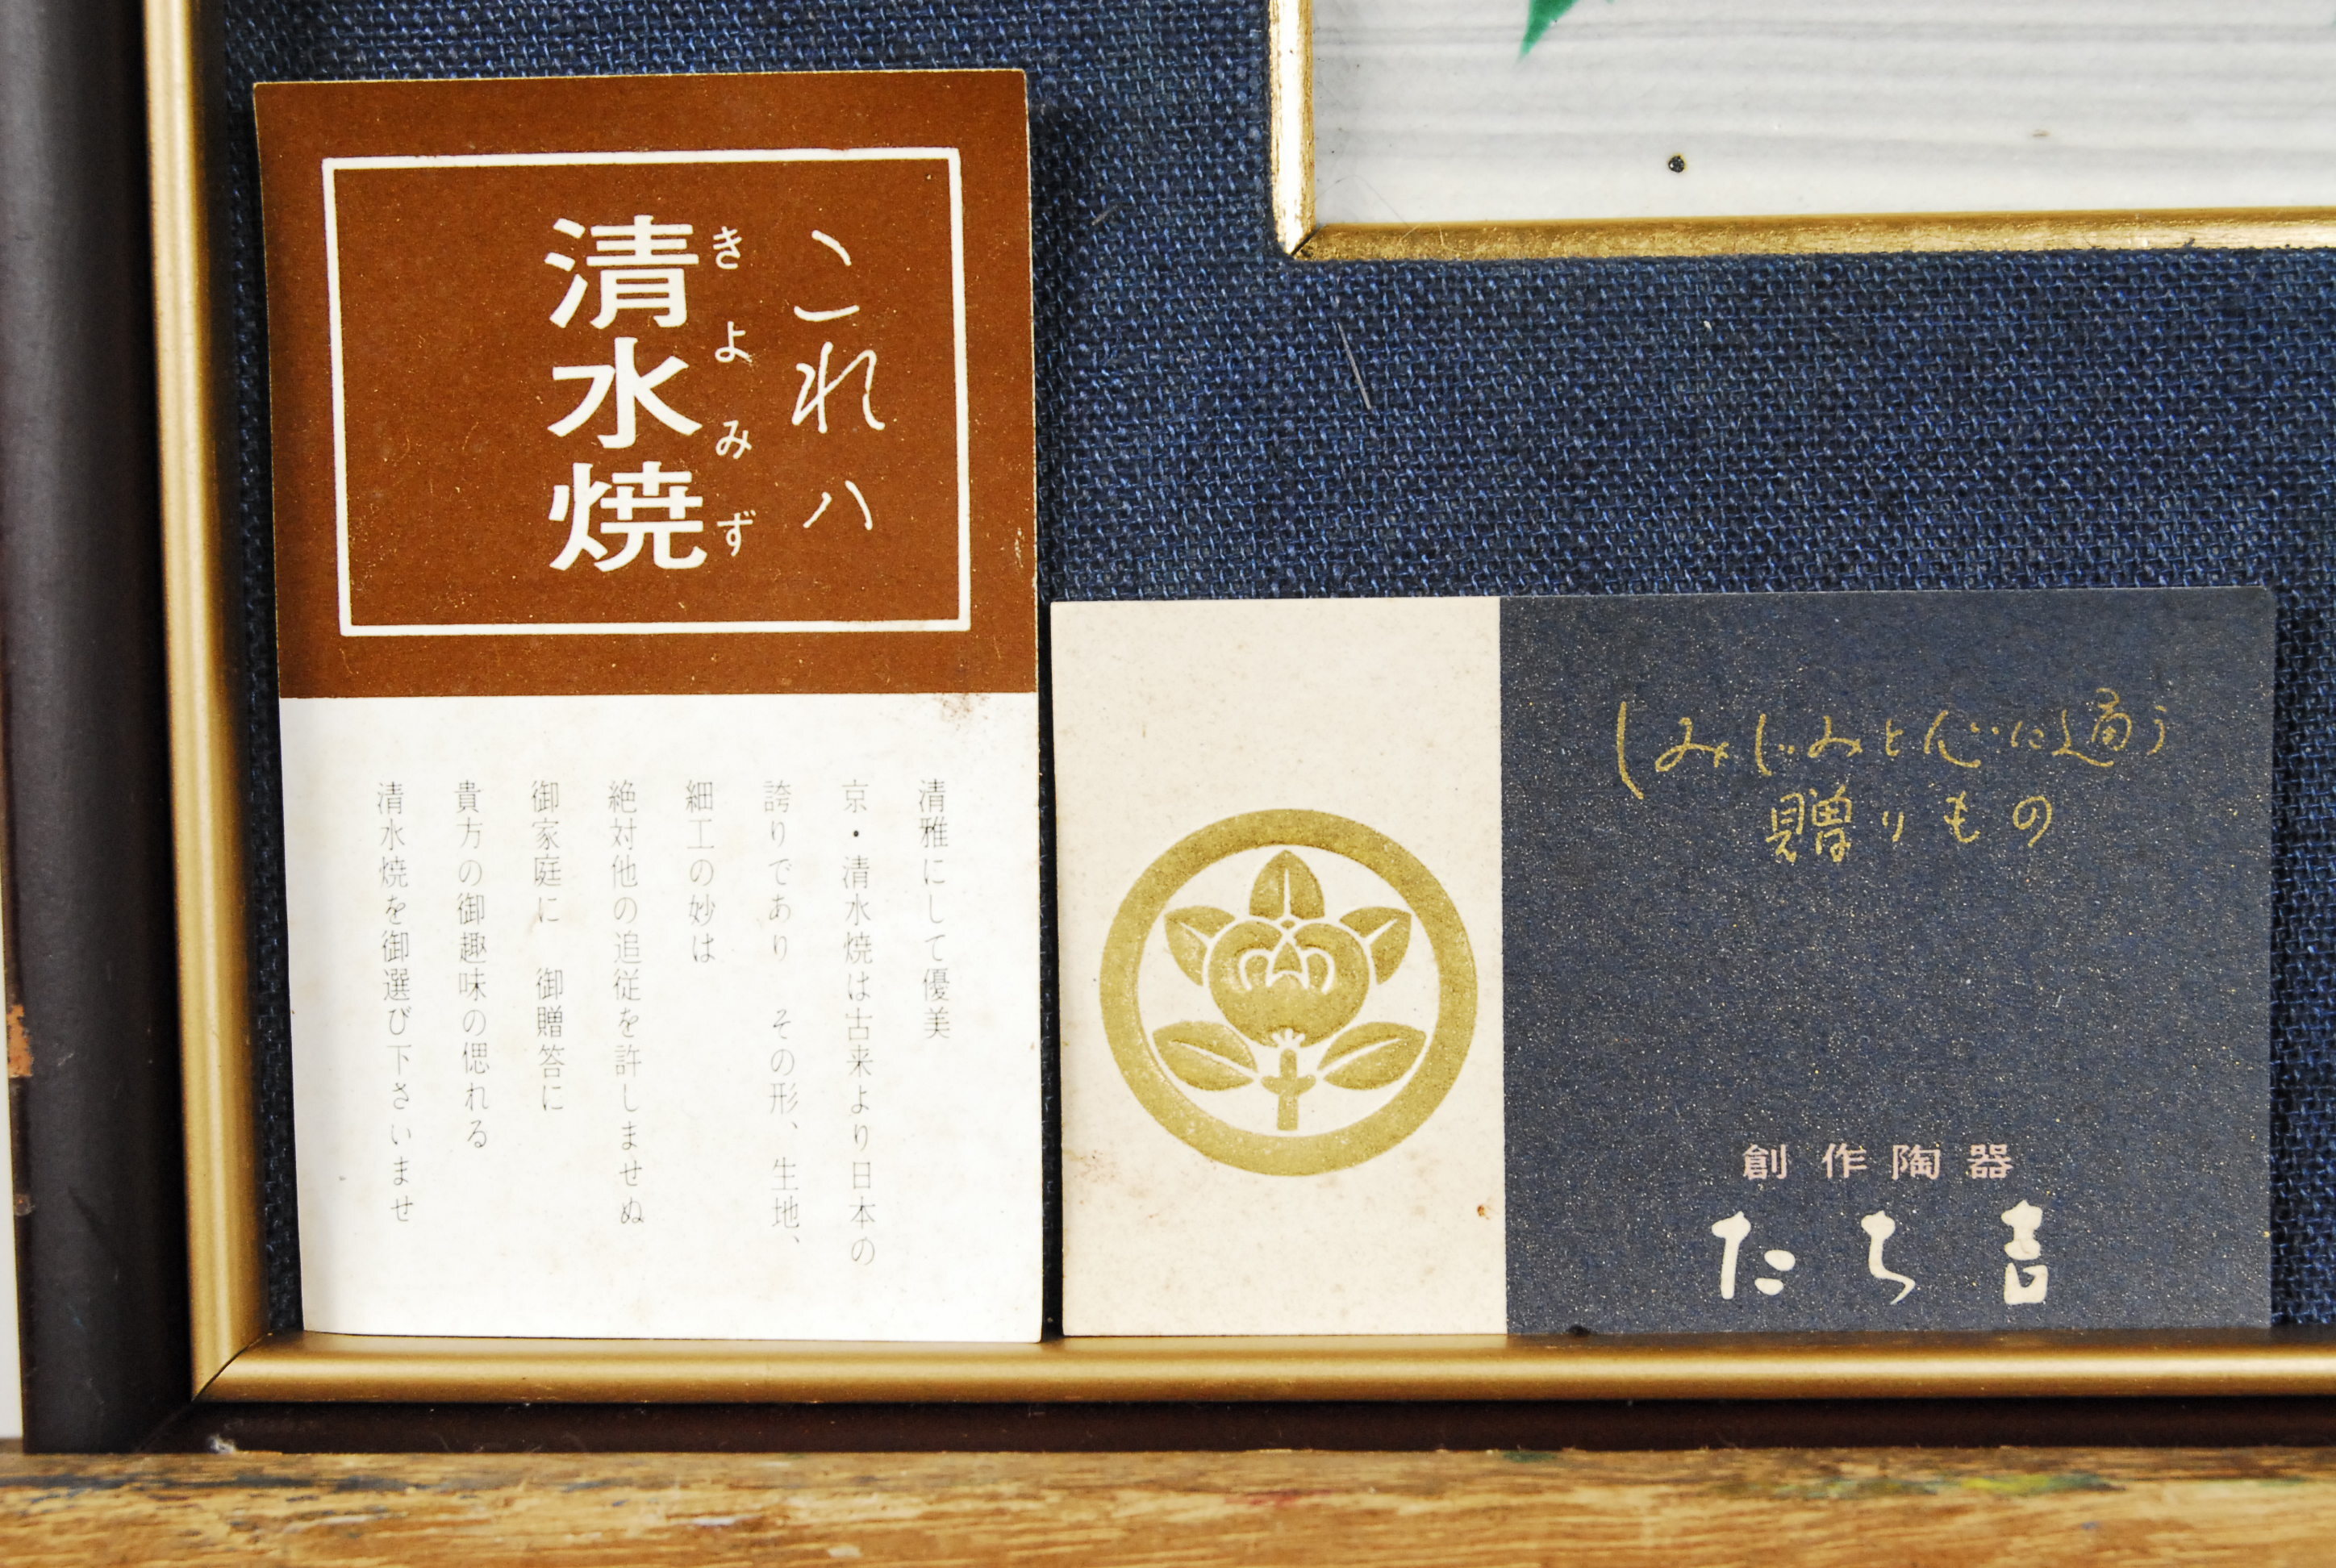 これハ
清水焼
きよみず
清雅にして優美
京・清水焼は古来より日本の
誇りであり　その形、生地、
細工の妙は
絶対他の追従を許しませぬ
御家庭に　御贈答に
貴方の御趣味の偲れる
清水焼を御選び下さいませ
しみじみと心に適う
贈りもの
創作陶器
たち吉